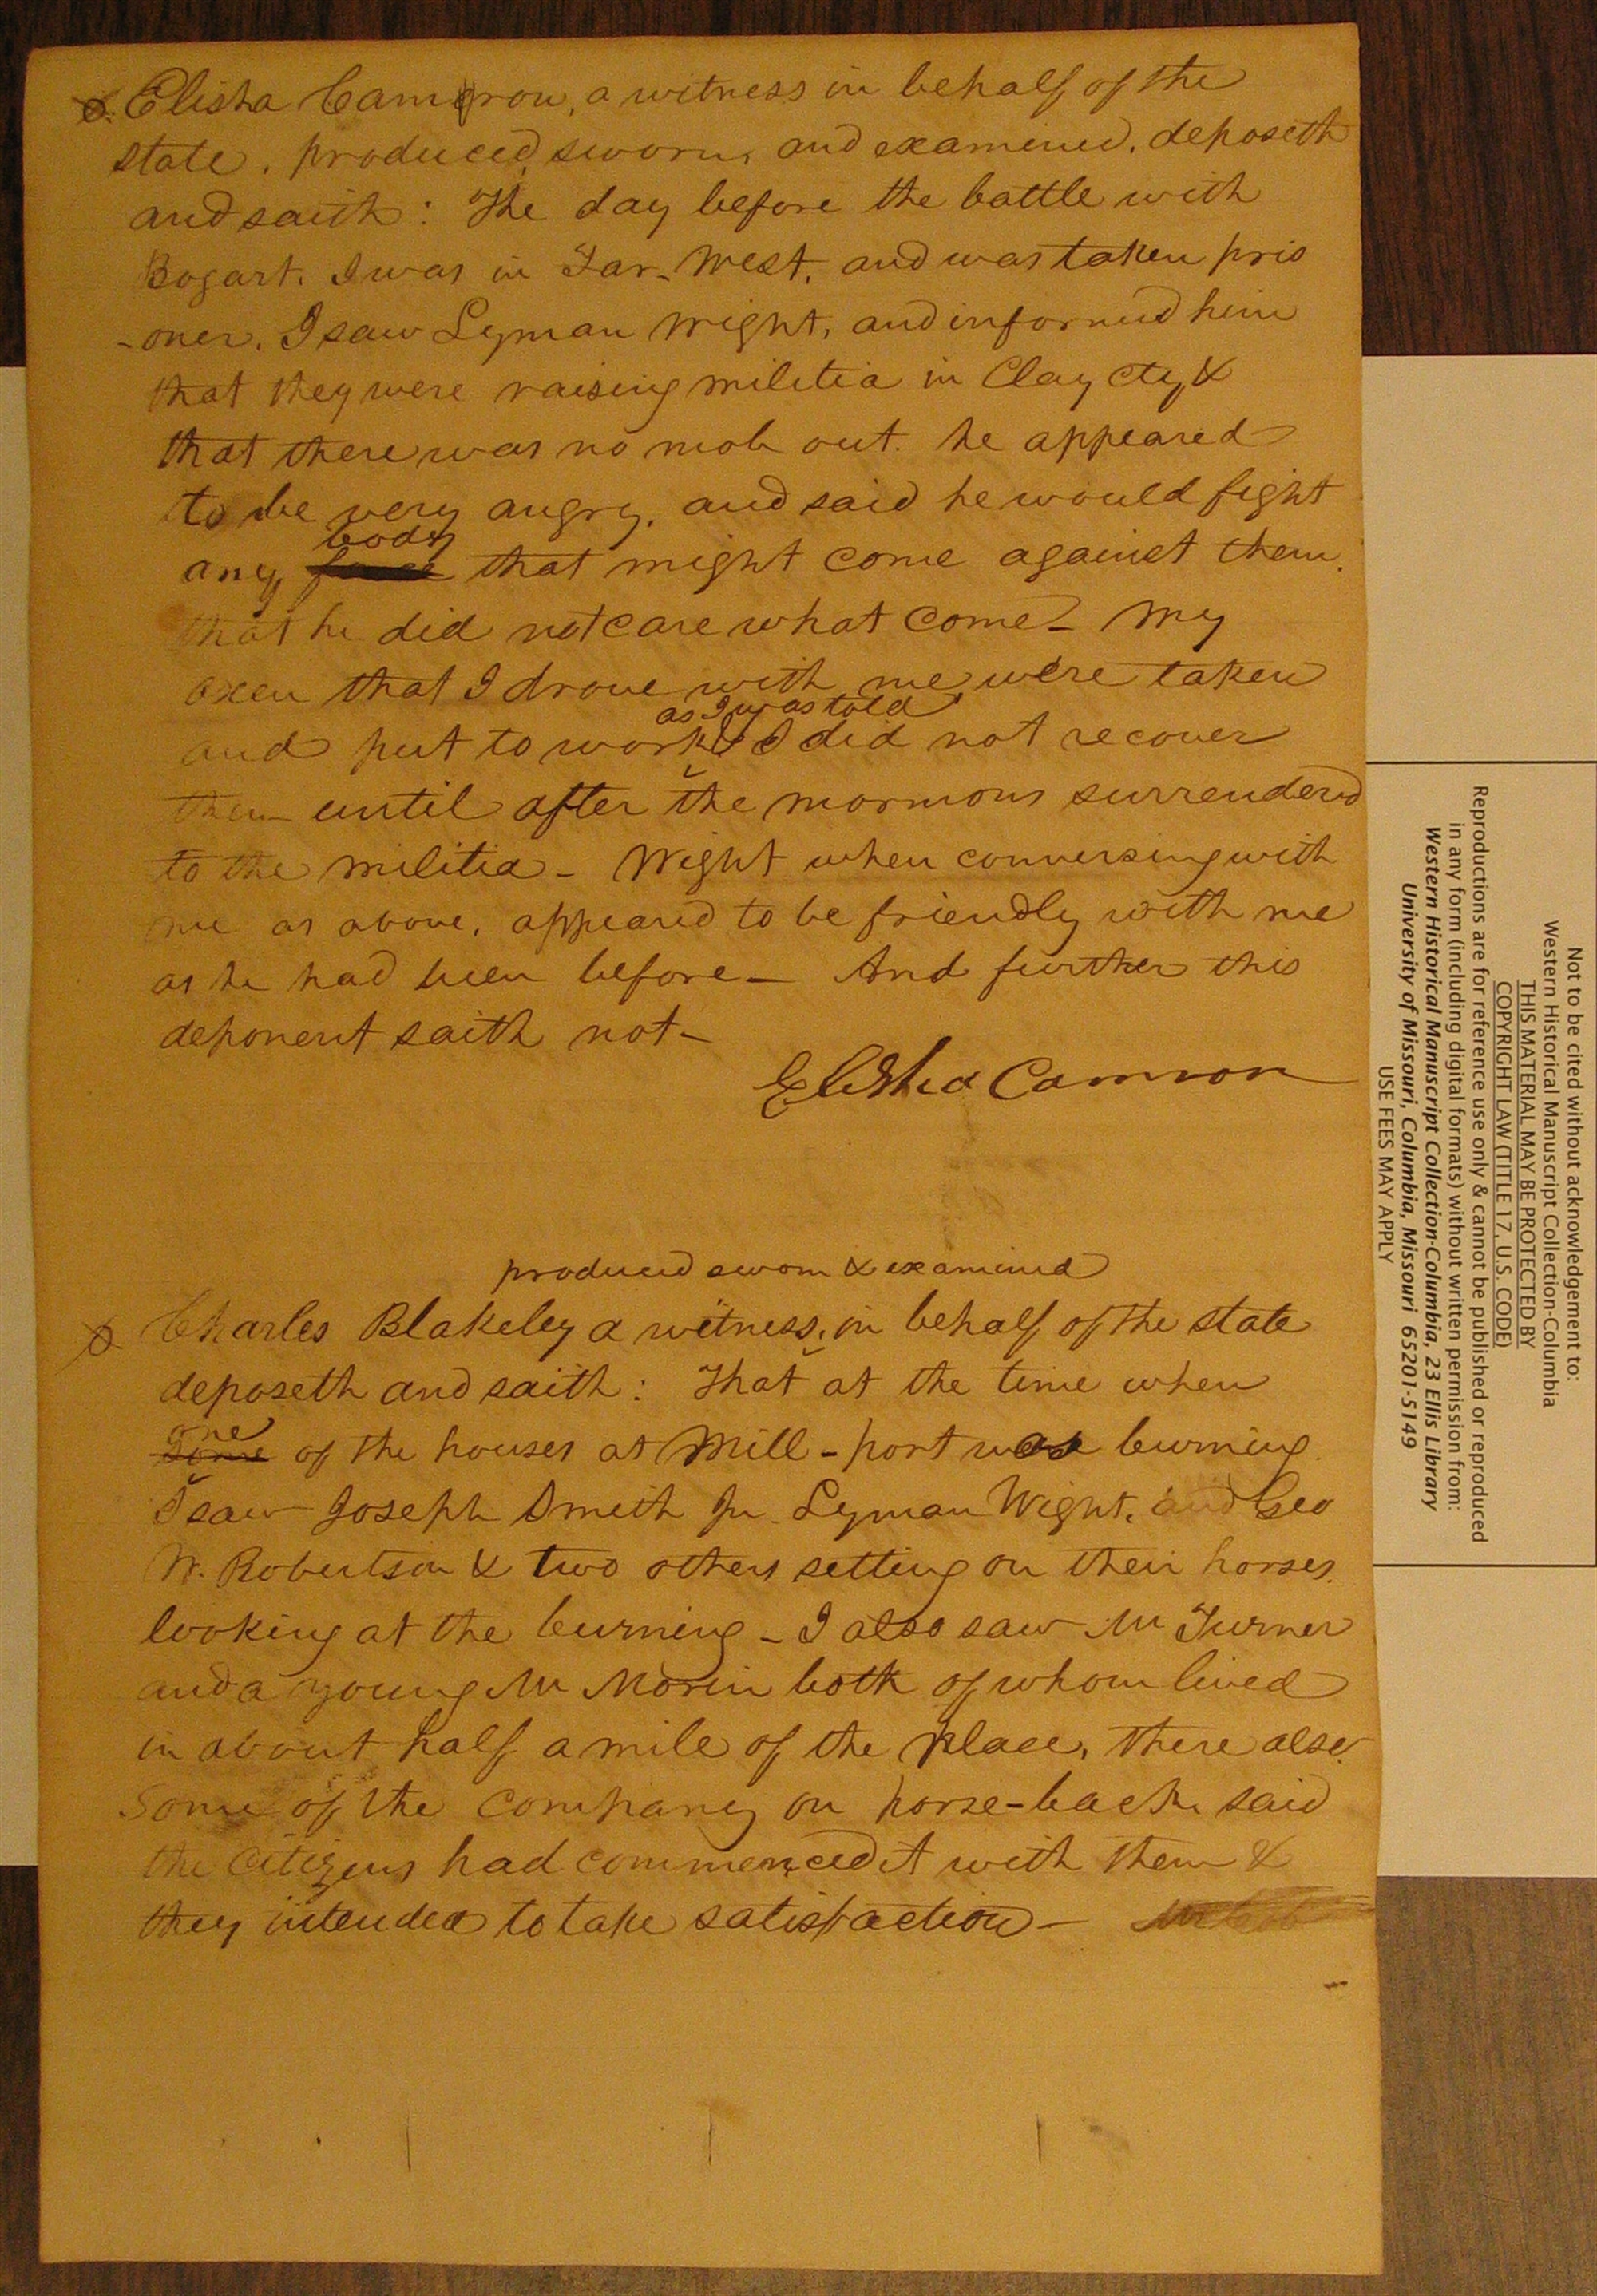 Elisha Cameron, a witness in behalf of the
state, produced, sworn, and examined, deposeth
and saith: The day before the battle with
Bogart. I was in Far-West, and was taken pris
-oner. I saw Lyman Wright, and informed him
that they were raising militia in Clay cty, &
that there was no mob out. he appeared
to be very angry, and said he would fight
body
any that might come against them.
that he did not care what come - My
oxen that I drove with me were taken
as I was told
and put to work & I did not recover
them until after the mormons surrendered
to the militia - Wight when conversing with
me as above, appeared to be friendly with me
as he had been before - And further this
deponent saith not -
Elisha Camron
produced sworn & examined
Charles Blakeley a witness, in behalf of the state
deposeth and saith: That at the time when
one
some of the houses at Mill-port was burning
I saw Joseph Smith Jr. Lyman Wight, and Geo
W. Robertson & two others setting on their horses.
looking at the burning - I also saw Mr Turner
and a young Mr Morin both of whom lived
in about half a mile of the place, there also.
Some of the company on horse-back said
the citizens had commenced it with them &
they intended to take satisfaction -
Not to be cited without acknowledgement to:
Western Historical Manuscript Collection-Columbia
THIS MATERIAL MAY BE PROTECTED BY
COPYRIGHT LAW (TITLE 17, U.S. CODE)
Reproductions are for reference use only & cannot be published or reproduced
in any form (including digital formats) without written permission from:
Western Historical Manuscript Collection-Columbia, 23 Ellis Library
University of Missouri, Columbia, Missouri 65201-5149
USE FEES MAY APPLY